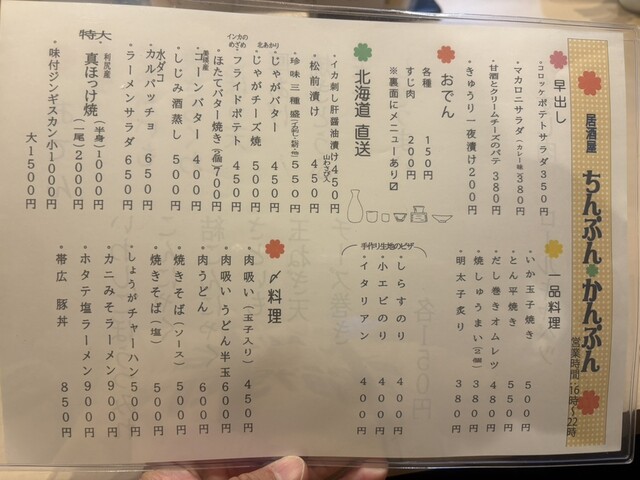 居酒屋 ちんぷん かんぷん
営業時間:16時~22時
早出し
・コロッケポテトサラダ 350円
・マカロニサラダ(カレー味) 380円
・甘酒とクリームチーズのパテ 380円
・きゅうり一夜漬け 200円
おでん
各種 150円
すじ肉 200円
※裏面にメニューあり
北海道 直送
・イカ刺し肝醤油漬け 山わさび入 450円
・松前漬け 450円
・珍味三種盛 550円
・じゃがバター 450円
北あかり
・じゃがチーズ焼 500円
インカのめざめ
・フライドポテト 450円
・ほたてバター焼き(2個) 700円
・コーンバター 400円
・しじみ酒蒸し 500円
・水ダコカルパッチョ 650円
・ラーメンサラダ 650円
特大
利尻産
・真ほっけ焼 (半身) 1000円
(一尾) 2000円
・味付ジンギスカン 小1000円
大1500円
一品料理
・いか玉子焼き 500円
・とん平焼き 550円
・だし巻きオムレツ 480円
・焼しゅうまい(5個) 380円
・明太子炙り 380円
手作り生地のピザ
・しらすのり 400円
・小エビのり 400円
・イタリアン 400円
〆料理
・肉吸い(玉子入り) 450円
・肉吸いうどん半玉 600円
・肉うどん 600円
・焼きそば(ソース) 500円
・焼きそば(塩) 500円
・しょうがチャーハン 500円
・カニみそラーメン 900円
・ホタテ塩ラーメン 900円
・帯広 豚丼 850円